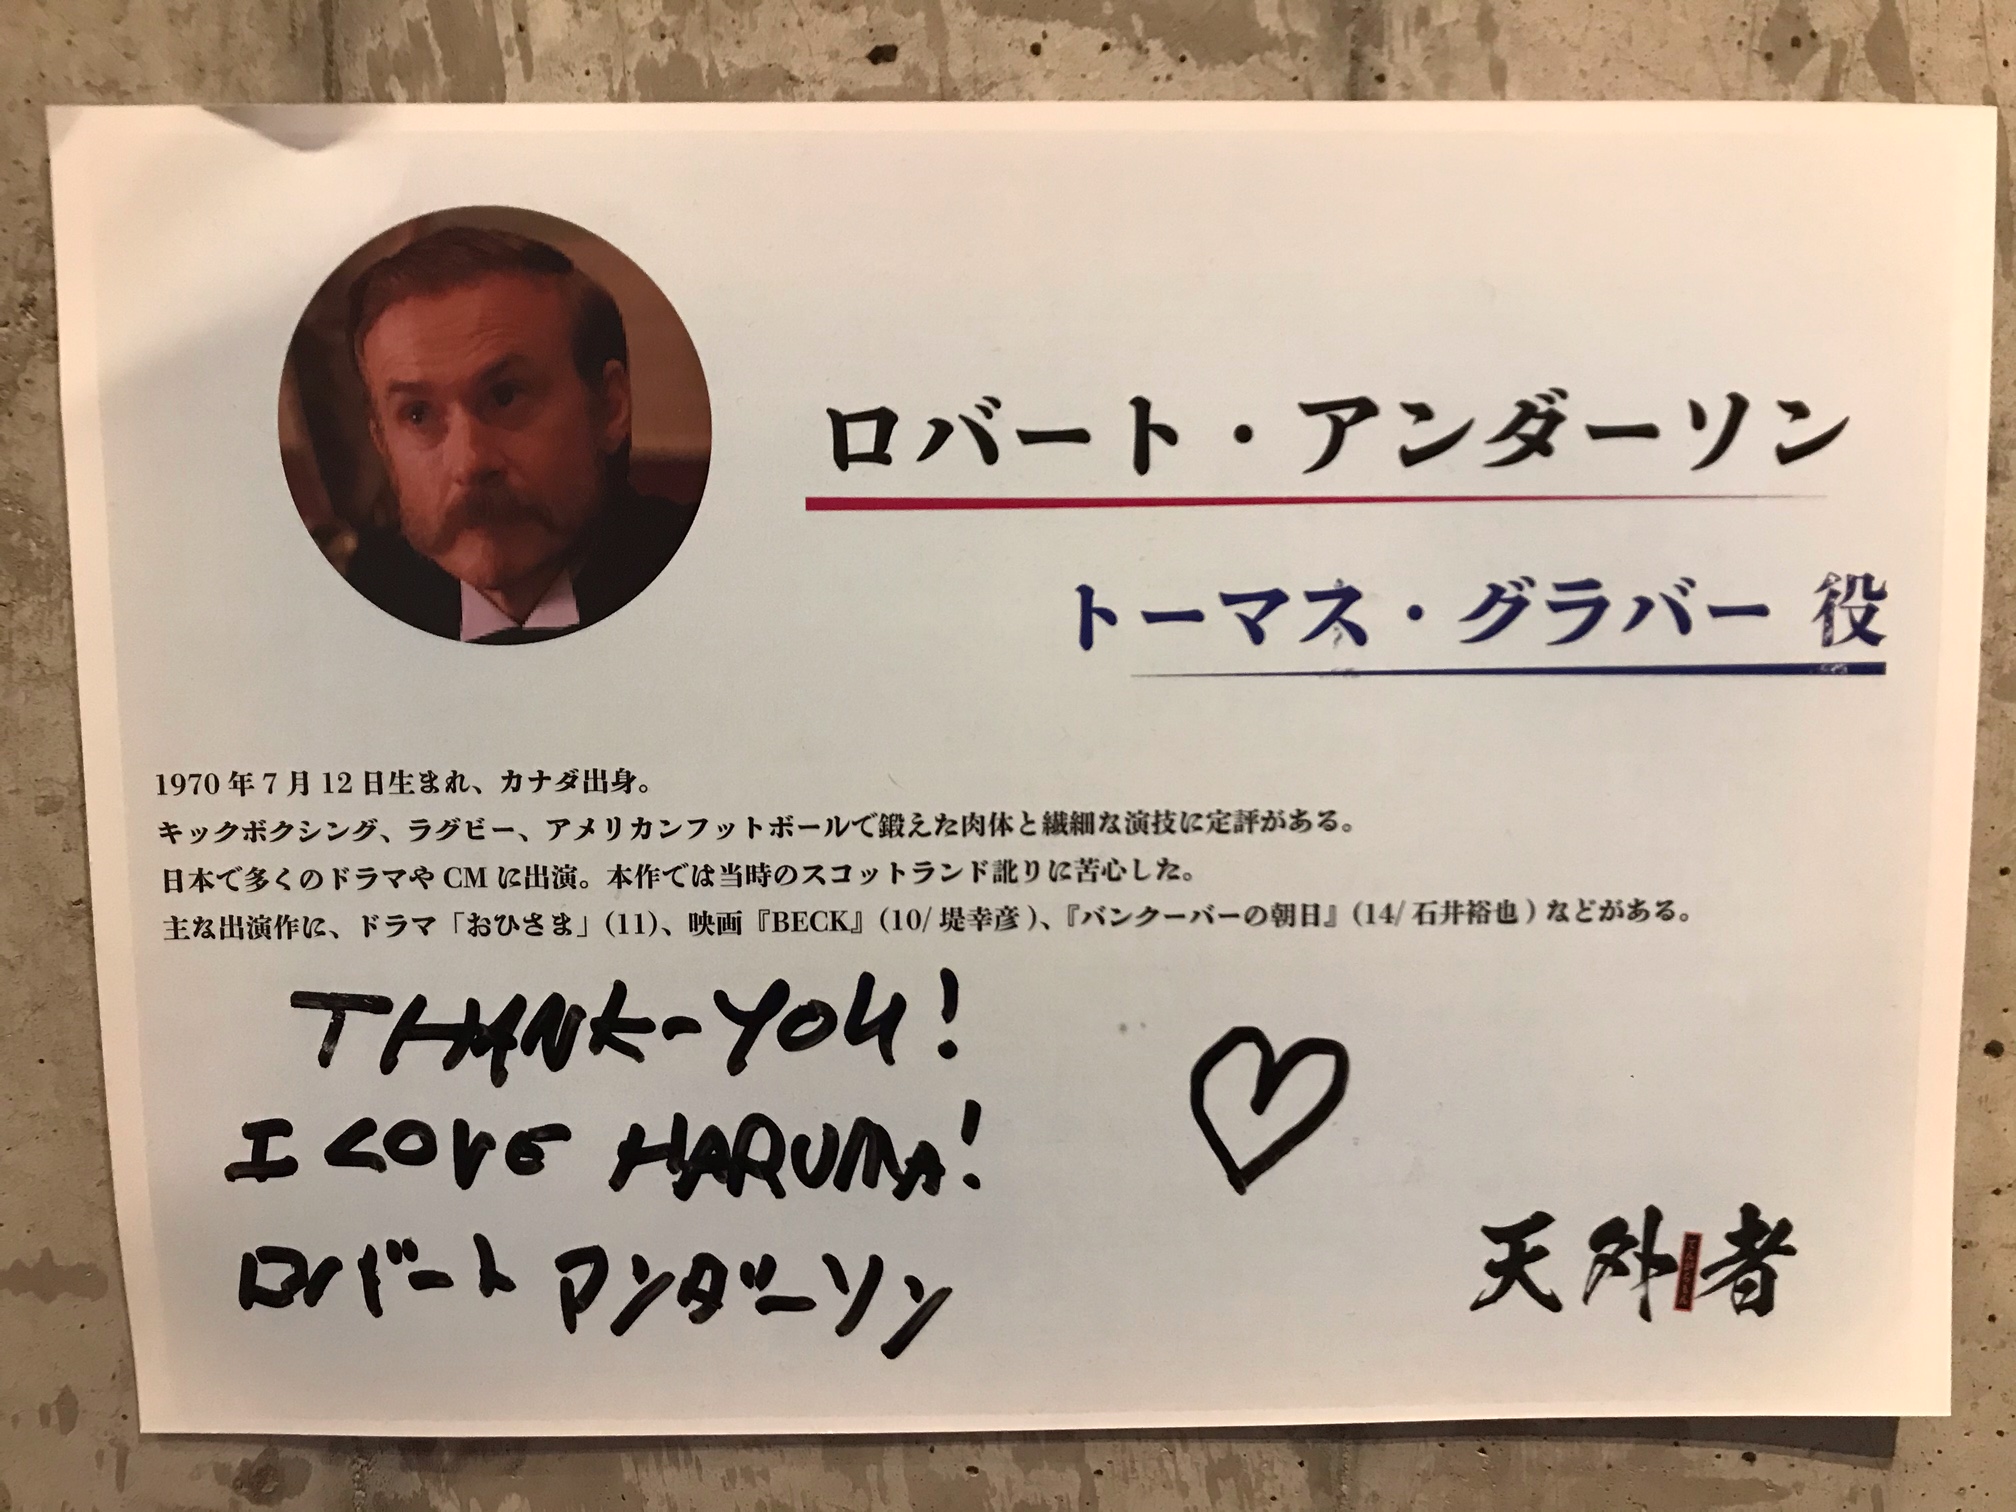 ロバート・アンダーソン
トーマス・グラバー 役
1970年7月12日生まれ、カナダ出身。
キックボクシング、ラグビー、アメリカンフットボールで鍛えた肉体と繊細な演技に定評がある。
日本で多くのドラマやCMに出演。本作では当時のスコットランド訛りに苦心した。
主な出演作に、ドラマ「おひさま」(11)、映画『BECK』(10/堤幸彦)、『バンクーバーの朝日』(14/石井裕也)などがある。
THANK-YOU!
I LOVE HARUMA!
ロバート アンダーソン
天外者
てんがらもん